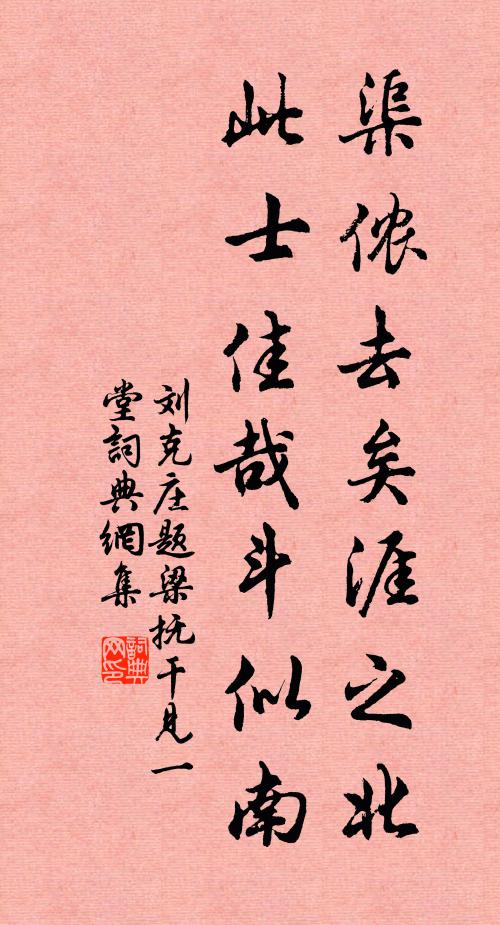 渠侬去矣涯之北
此士佳哉斗似南
刘克庄题梁抚干见一
堂詞典網集
詞典
网印